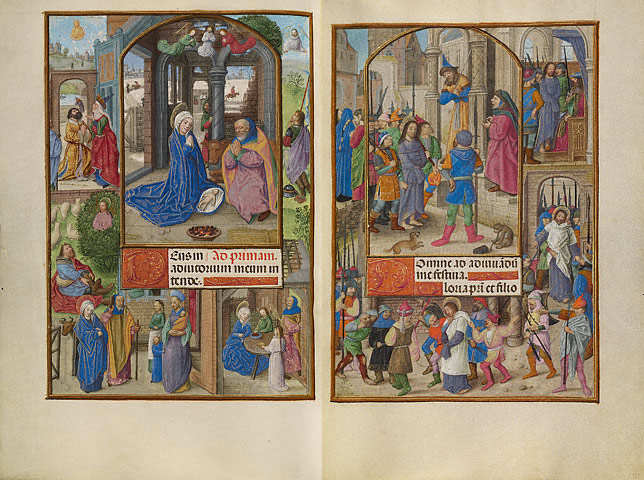 Deus in Ad primam.
adiutorium meum in
tende.
Domine ad adiuuadū
me festina.
loria pri et filio